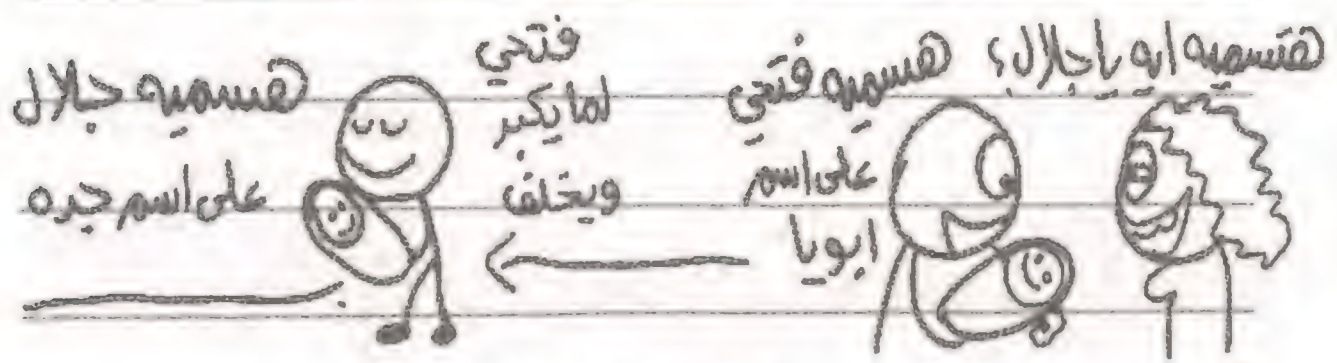 هتسميه ايه يا جلال؟
هسميه فتحي
على اسم
ابويا
فتحي
لما يكبر
ويخلف
هسميه جلال
على اسم جده